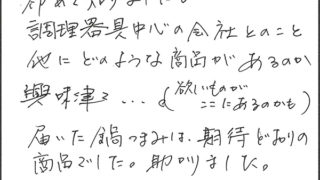 調理器具中心の会社とのこと
他にどのような商品があるのか
興味津々…(欲しいものが
ここにあるのかも)
届いた鍋つまみは、期待どおりの
商品でした。助かりました。